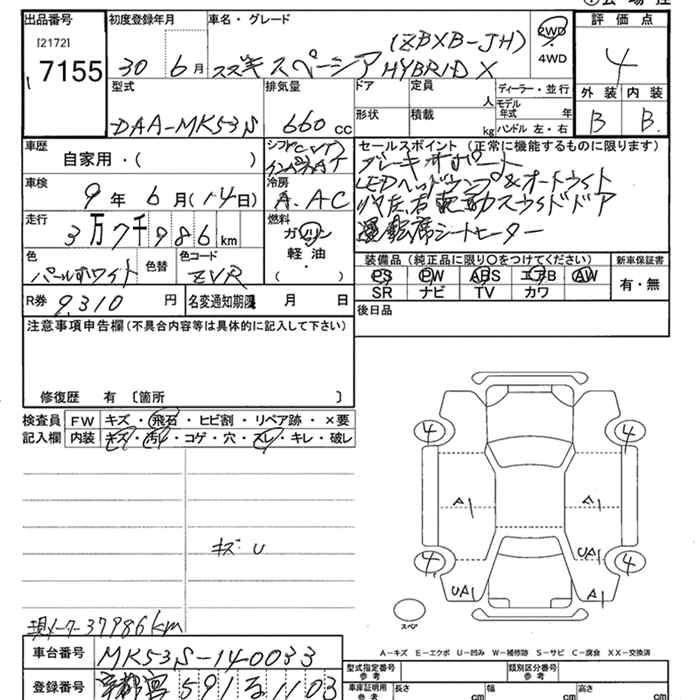 出品番号
[2172]
7155
初度登録年月
30 6月
車名・グレード
(ZBXB-JH)
スズキ スペーシア HYBRID X
2WD
・
4WD
評価点
4
外装 内装
B B
型式
DAA-MK53S
排気量
660 cc
ドア
形状
定員
人
積載
kg
ディーラー・並行
モデル年式 年
ハンドル 左・右
車歴
自家用・( )
シフト CVT
インパネAT
セールスポイント (正常に機能するものに限ります)
ブレーキサポート
LEDヘッドランプ&オートライト
左右電動スライドドア
運転席シートヒーター
車検
9年 6月(14日)
冷房
A.AC
走行
3万7千986km
燃料
ガソリン
・
軽油
・
( )
色
パールホワイト
色替
色コード
ZVR
R券
9,310 円
名変通知期限 月 日
装備品 (純正品に限り○をつけてください)
PS PW ABS エアB AW
SR ナビ TV カワ
新車保証書
有・無
後日品
注意事項申告欄(不具合内容等は具体的に記入して下さい)
修復歴 有 〔箇所 〕
検査員
記入欄
FW キズ・飛石・ヒビ割・リペア跡・×要
内装 キズ・汚レ・コゲ・穴・スレ・キレ・破レ
キズ U
現メーター37986km
4 4
A1 A1
UA1
4 4
UA1 A1
スペア
A-キズ E-エクボ U-凹み W-補修跡 S-サビ C-腐食 XX-交換済
車台番号
MK53S-140033
登録番号
型式指定番号
参考
類別区分番号
参考
車庫証明用
参考
長さ cm
幅 cm
高さ cm